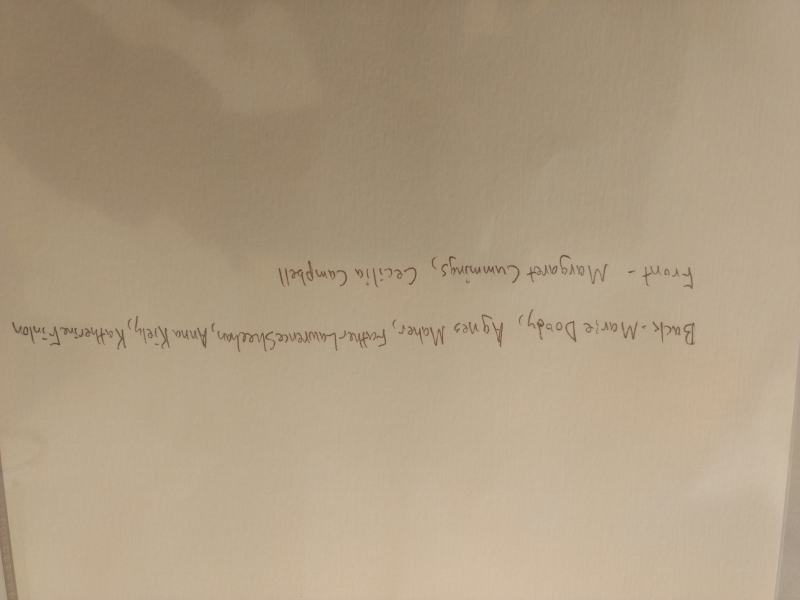 Back - Marie Doody, Agnes Maher, Father Lawrence Sheehan, Anna Kiely, Katherine Finlon
Front - Margaret Cummings, Cecilia Campbell